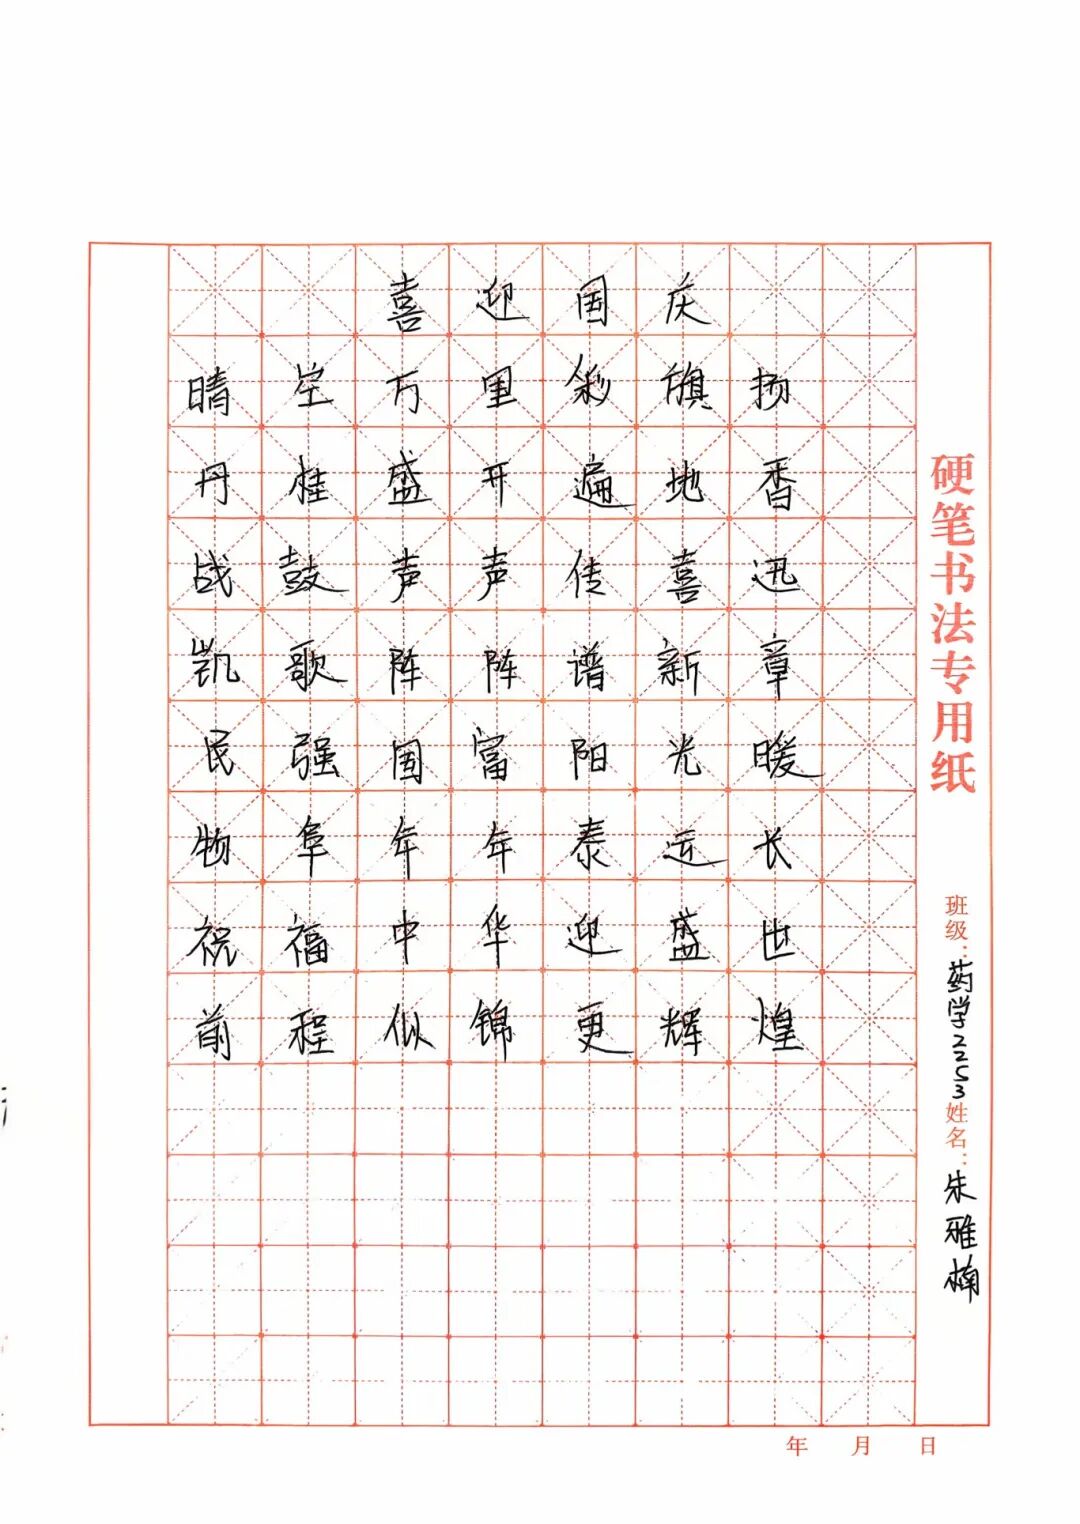 喜迎国庆
晴空万里彩旗扬
丹桂盛开遍地香
战鼓声声传喜迅
凯歌阵阵谱新章
民强国富阳光暖
物阜年年泰运长
祝福中华迎盛世
前程似锦更辉煌
硬笔书法专用纸
班级：药学2253姓名：朱雅楠
年 月 日